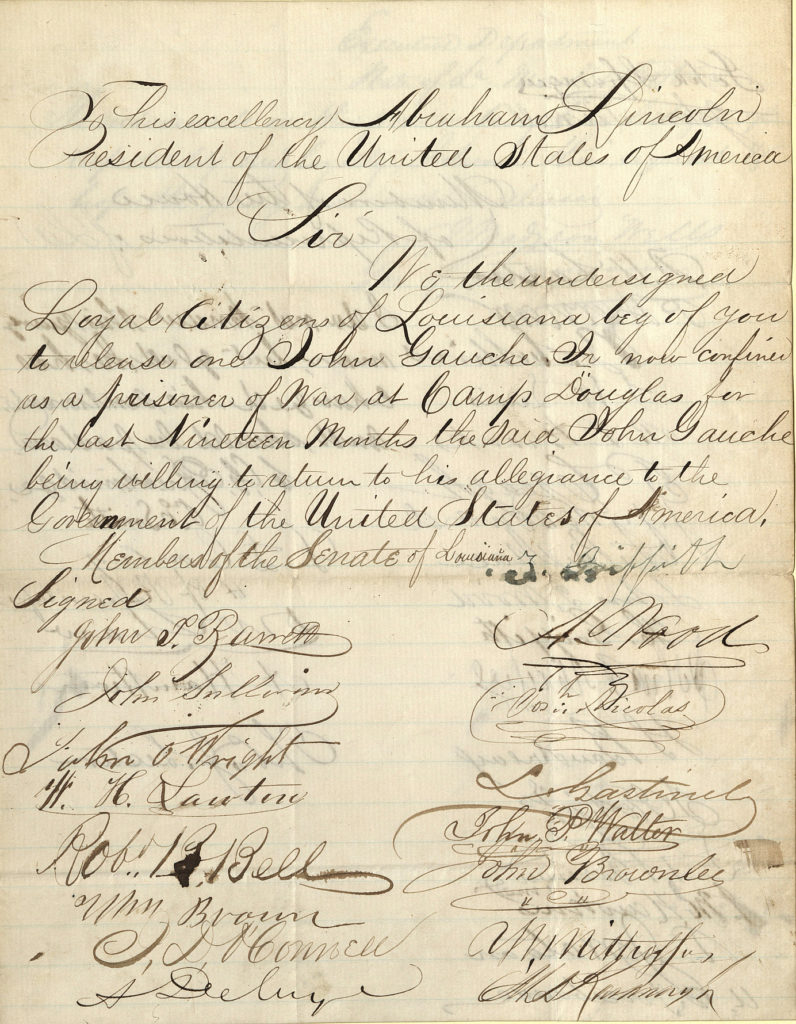 To his excellency Abraham Lincoln
President of the United States of America
Sir
We the undersigned
Loyal Citizens of Louisiana beg of you
to release one John Gauche. Jr now confined
as a prisoner of War at Camp Douglas for
the last Nineteen Months the said John Gauche
being willing to return to his allegiance to the
Government of the United States of America.
Members of the Senate of Louisiana
Griffith
Signed
John P. Barrett
A. Wood
John Sullivan
Nicolas
John O Wright
W. H. Lawton
L. Gastinel
John P. Walter
Robt. B. Bell
John Brownlee
Wm Brown
J. D. O'Connell
W. Mithoff
Kavanagh